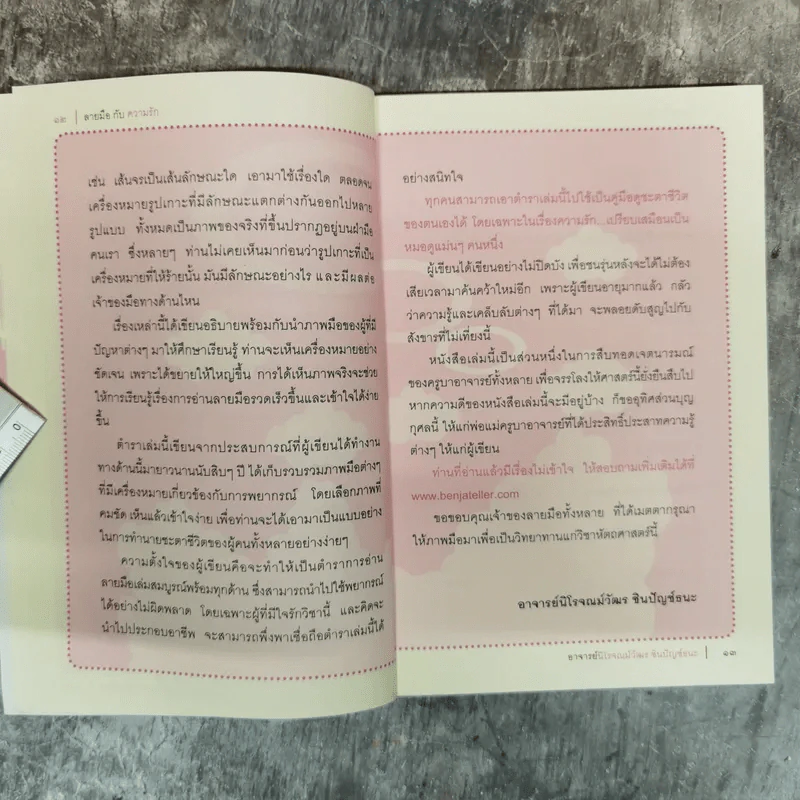 ๑๒ | ลายมือ กับ ความรัก
เช่น เส้นจรเป็นเส้นลักษณะใด เอามาใช้เรื่องใด ตลอดจน
เครื่องหมายรูปเกาะที่มีลักษณะแตกต่างกันออกไปหลาย
รูปแบบ ทั้งหมดเป็นภาพของจริงที่ขึ้นปรากฏอยู่บนฝ่ามือ
คนเรา ซึ่งหลายๆ ท่านไม่เคยเห็นมาก่อนว่ารูปเกาะที่เป็น
เครื่องหมายที่ให้ร้ายนั้น มันมีลักษณะอย่างไร และมีผลต่อ
เจ้าของมือทางด้านไหน
เรื่องเหล่านี้ได้เขียนอธิบายพร้อมกับนำภาพมือของผู้ที่มี
ปัญหาต่างๆ มาให้ศึกษาเรียนรู้ ท่านจะเห็นเครื่องหมายอย่าง
ชัดเจน เพราะได้ขยายให้ใหญ่ขึ้น การได้เห็นภาพจริงจะช่วย
ให้การเรียนรู้เรื่องการอ่านลายมือรวดเร็วขึ้นและเข้าใจได้ง่าย
ขึ้น
ตำราเล่มนี้เขียนจากประสบการณ์ที่ผู้เขียนได้ทำงาน
ทางด้านนี้มายาวนานนับสิบๆ ปี ได้เก็บรวบรวมภาพมือต่างๆ
ที่มีเครื่องหมายเกี่ยวข้องกับการพยากรณ์ โดยเลือกภาพที่
คมชัด เห็นแล้วเข้าใจง่าย เพื่อท่านจะได้เอามาเป็นแบบอย่าง
ในการทำนายชะตาชีวิตของผู้คนทั้งหลายอย่างง่ายๆ
ความตั้งใจของผู้เขียนคือจะทำให้เป็นตำราการอ่าน
ลายมือเล่มสมบูรณ์พร้อมทุกด้าน ซึ่งสามารถนำไปใช้พยากรณ์
ได้อย่างไม่ผิดพลาด โดยเฉพาะผู้ที่มีใจรักวิชานี้ และคิดจะ
นำไปประกอบอาชีพ จะสามารถพึ่งพาเชื่อถือตำราเล่มนี้ได้
อย่างสนิทใจ
ทุกคนสามารถเอาตำราเล่มนี้ไปใช้เป็นคู่มือดูชะตาชีวิต
ของตนเองได้ โดยเฉพาะในเรื่องความรัก เปรียบเสมือนเป็น
หมอดูแม่นๆ คนหนึ่ง
ผู้เขียนได้เขียนอย่างไม่ปิดบัง เพื่อชนรุ่นหลังจะได้ไม่ต้อง
เสียเวลามาค้นคว้าใหม่อีก เพราะผู้เขียนอายุมากแล้ว กลัว
ว่าความรู้และเคล็บลับต่างๆ ที่ได้มา จะพลอยดับสูญไปกับ
สังขารที่ไม่เที่ยงนี้
หนังสือเล่มนี้เป็นส่วนหนึ่งในการสืบทอดเจตนารมณ์
ของครูบาอาจารย์ทั้งหลาย เพื่อจรรโลงให้ศาสตร์นี้ยั่งยืนสืบไป
หากความดีของหนังสือเล่มนี้จะมีอยู่บ้าง ก็ขออุทิศส่วนบุญ
กุศลนี้ ให้แก่พ่อแม่ครูบาอาจารย์ที่ได้ประสิทธิ์ประสาทความรู้
ต่างๆ ให้แก่ผู้เขียน
ท่านที่อ่านแล้วมีเรื่องไม่เข้าใจ ให้สอบถามเพิ่มเติมได้ที่
www.benjateller.com
ขอขอบคุณเจ้าของลายมือทั้งหลาย ที่ได้เมตตากรุณา
ให้ภาพมือมาเพื่อเป็นวิทยาทานแก่วิชาหัตถศาสตร์นี้
อาจารย์นิโรจณม์วัฒร ชินปัญช์ธนะ
อาจารย์นิโรจณม์วัฒร ชินปัญช์ธนะ | ๑๓